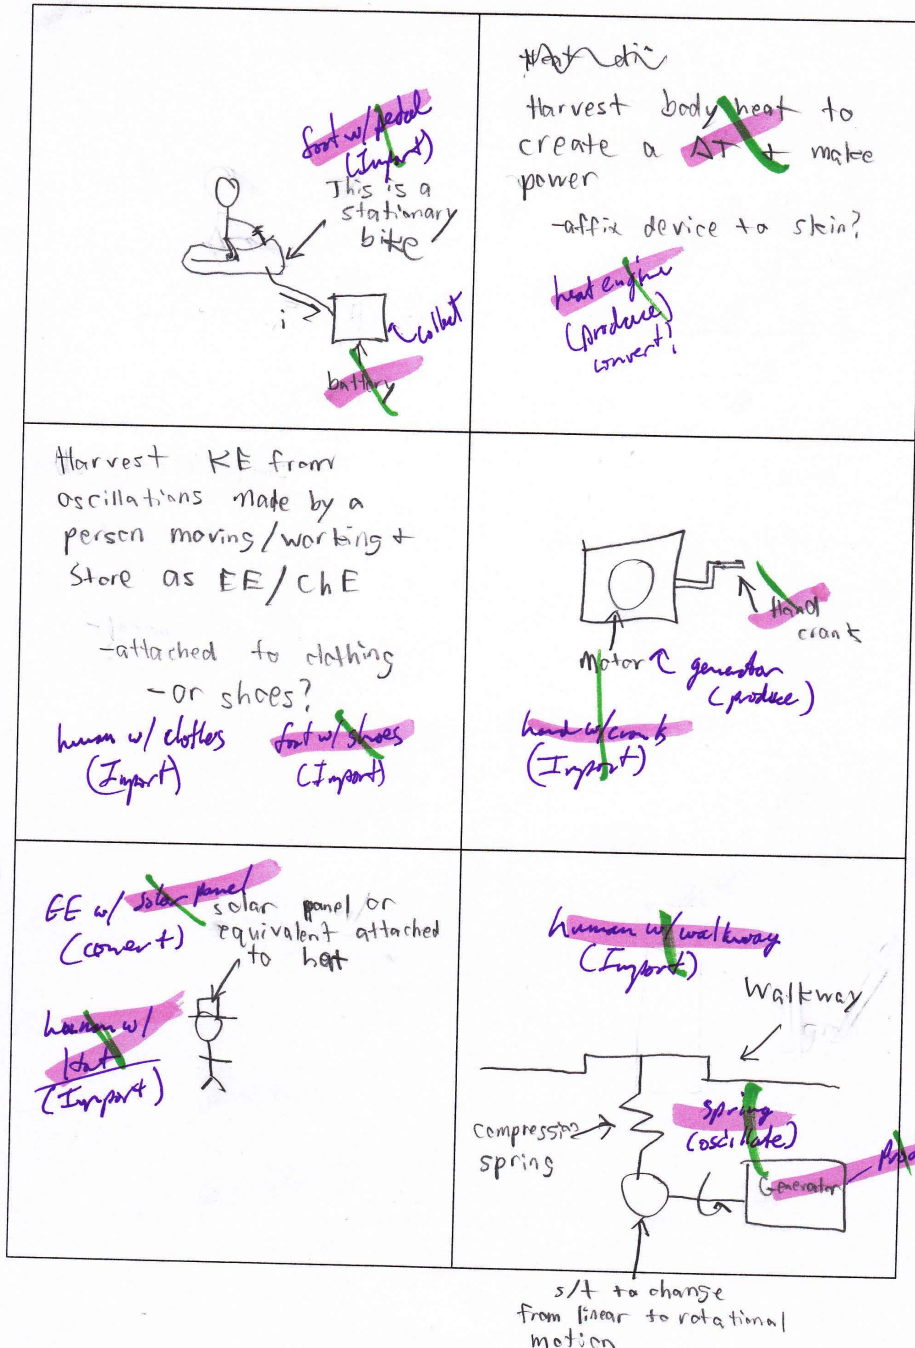 foot w/ pedal
(Import)
This is a
stationary
bike
i
collect
battery
Harvest body heat to
create a ΔT + make
power
-affix device to skin?
heat engine
(produce)
convert?
Harvest KE from
oscillations made by a
person moving/working +
Store as EE/ChE
-attached to clothing
-or shoes?
human w/ clothes
(Import)
foot w/ shoes
(Import)
Hand
crank
Motor
generator
(produce)
hand w/ crank
(Import)
EE w/ solar panel
(convert)
solar panel or
equivalent attached
to hat
human w/
Hat
(Import)
human w/ walkway
(Import)
Walkway
compression
spring
Spring
(oscillate)
Generator
s/t to change
from linear to rotational
motion